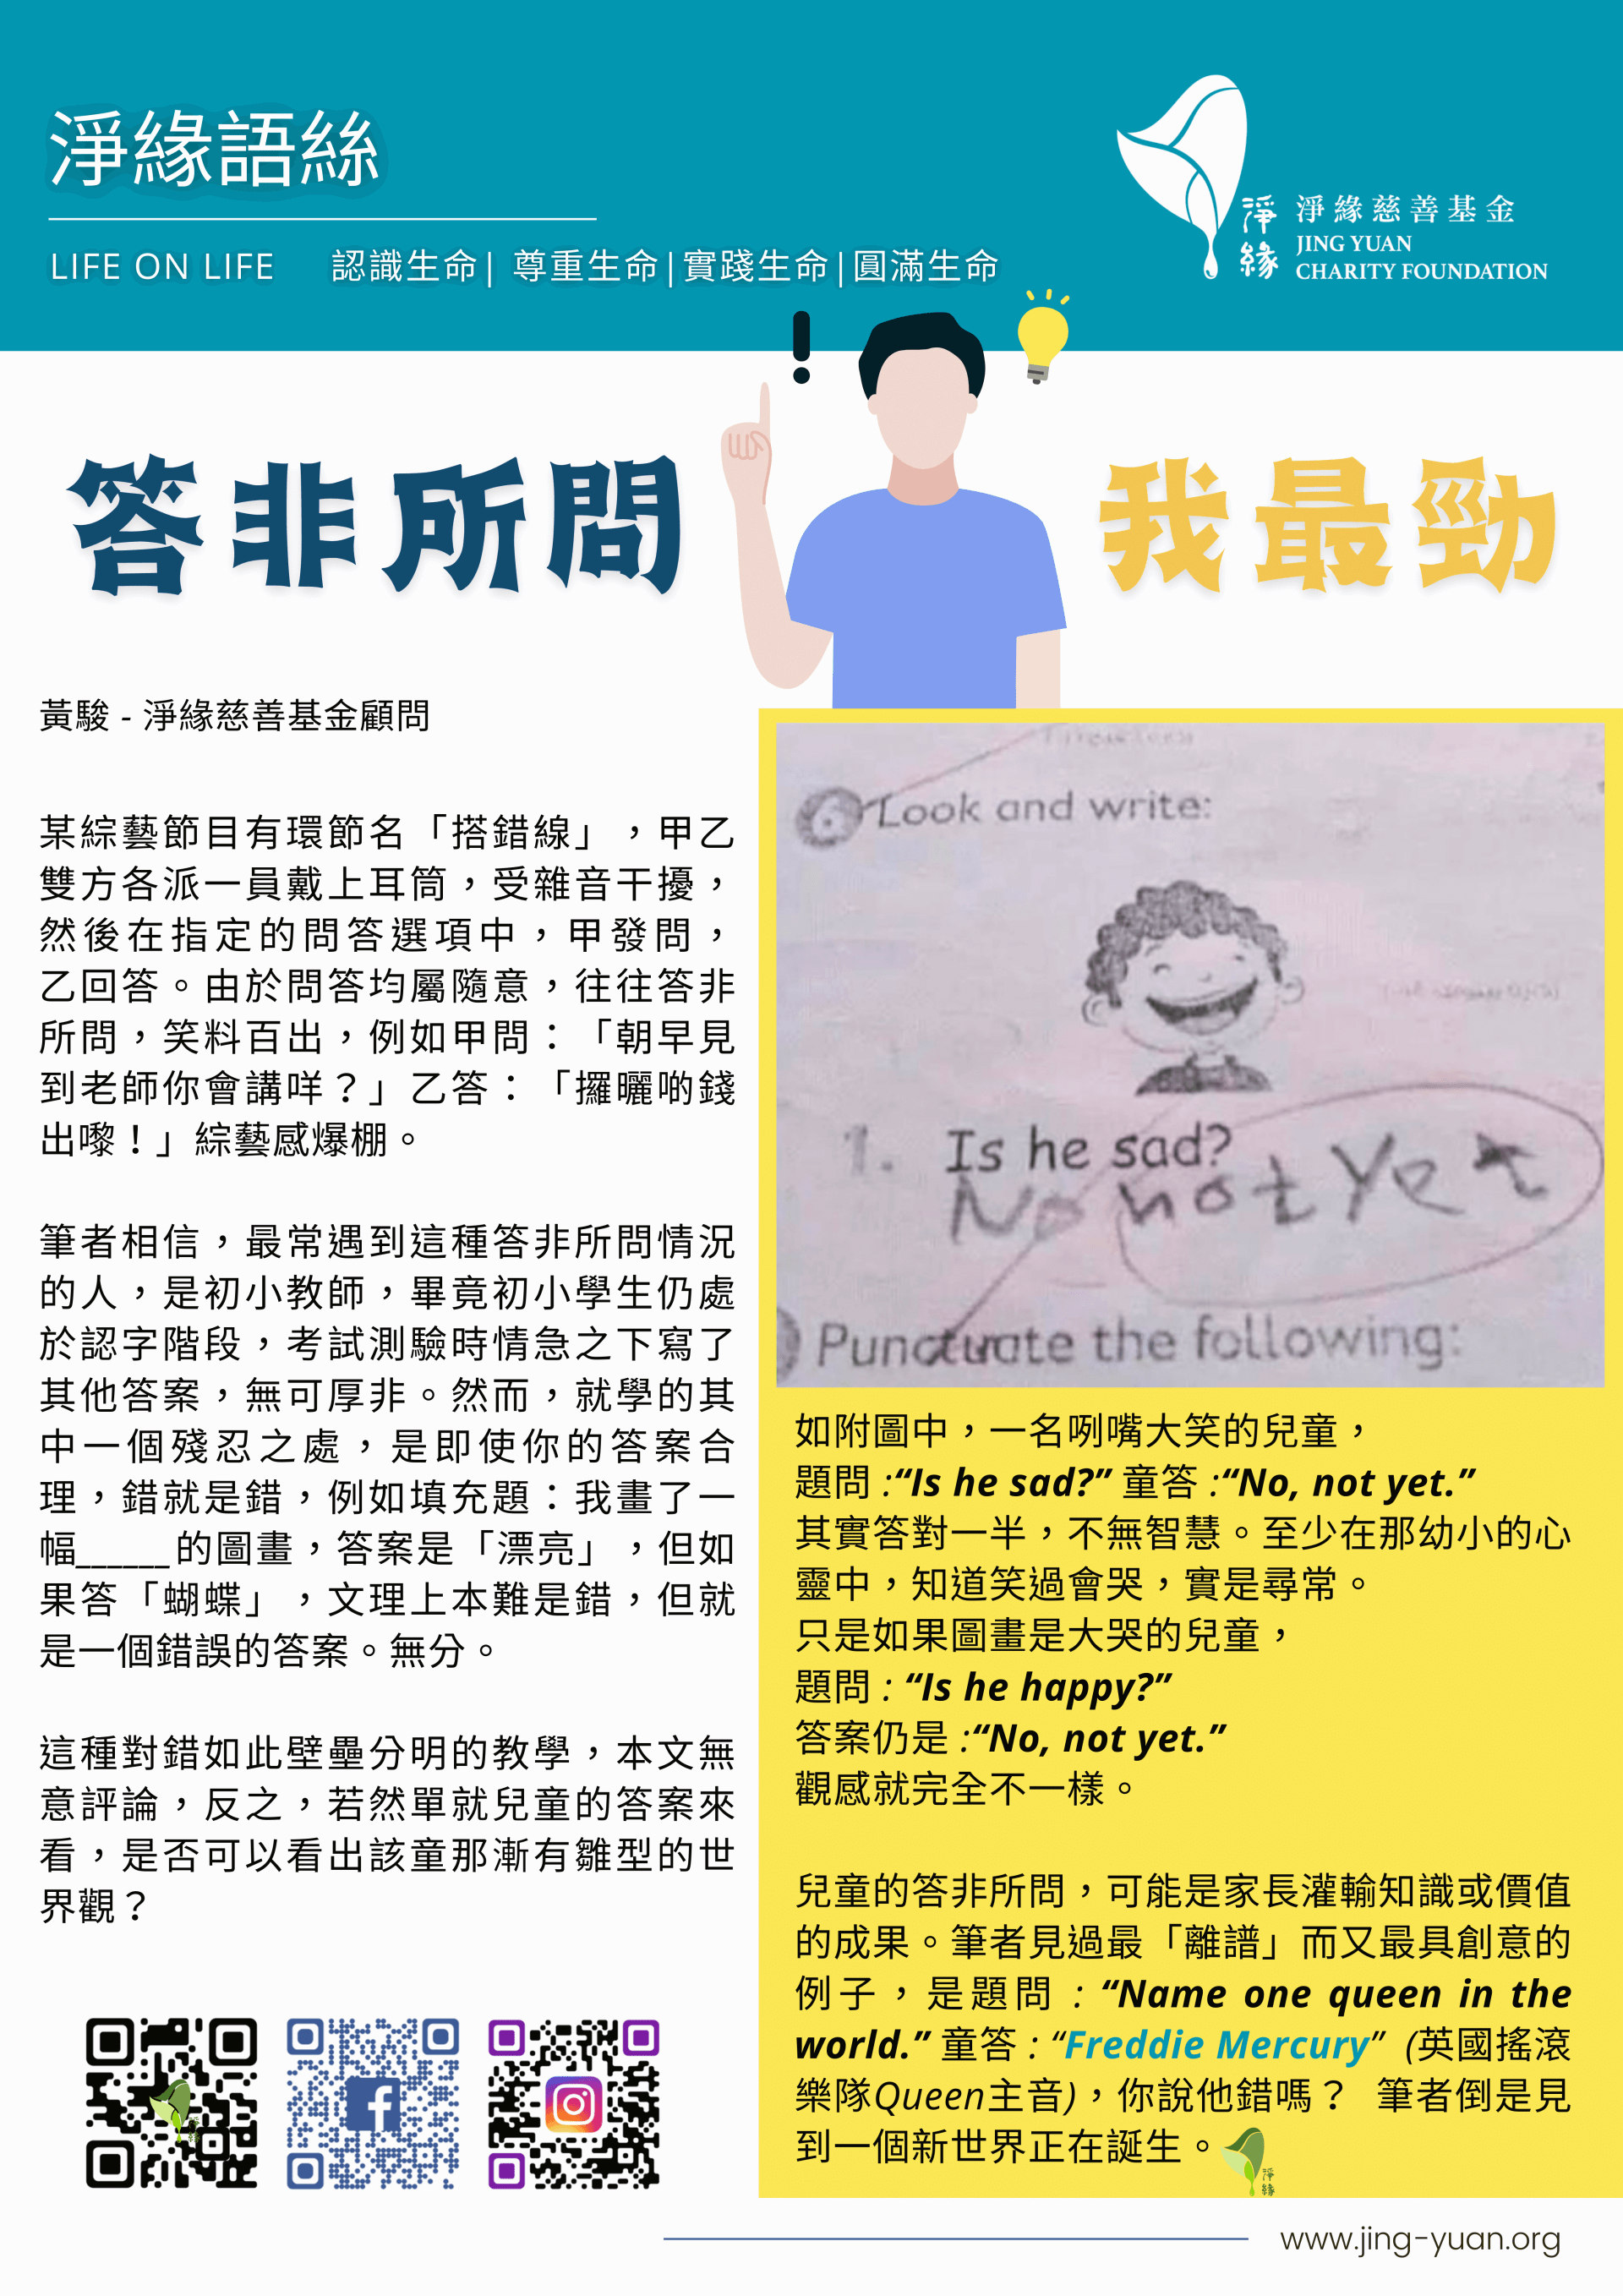 淨緣語絲
LIFE ON LIFE 認識生命| 尊重生命|實踐生命|圓滿生命
淨緣
淨緣慈善基金
JING YUAN
CHARITY FOUNDATION
!
答非所問
我最勁
黃駿 - 淨緣慈善基金顧問
某綜藝節目有環節名「搭錯線」，甲乙
雙方各派一員戴上耳筒，受雜音干擾，
然後在指定的問答選項中，甲發問，
乙回答。由於問答均屬隨意，往往答非
所問，笑料百出，例如甲問：「朝早見
到老師你會講咩？」乙答：「攞曬啲錢
出嚟！」綜藝感爆棚。
筆者相信，最常遇到這種答非所問情況
的人，是初小教師，畢竟初小學生仍處
於認字階段，考試測驗時情急之下寫了
其他答案，無可厚非。然而，就學的其
中一個殘忍之處，是即使你的答案合
理，錯就是錯，例如填充題：我畫了一
幅______的圖畫，答案是「漂亮」，但如
果答「蝴蝶」，文理上本難是錯，但就
是一個錯誤的答案。無分。
這種對錯如此壁壘分明的教學，本文無
意評論，反之，若然單就兒童的答案來
看，是否可以看出該童那漸有雛型的世
界觀？
6. Look and write:
1. Is he sad?
No not Yet
Punctuate the following:
如附圖中，一名咧嘴大笑的兒童，
題問 :“Is he sad?” 童答 :“No, not yet.”
其實答對一半，不無智慧。至少在那幼小的心
靈中，知道笑過會哭，實是尋常。
只是如果圖畫是大哭的兒童，
題問 : “Is he happy?”
答案仍是 :“No, not yet.”
觀感就完全不一樣。
兒童的答非所問，可能是家長灌輸知識或價值
的成果。筆者見過最「離譜」而又最具創意的
例子，是題問 : “Name one queen in the
world.” 童答 : “Freddie Mercury” (英國搖滾
樂隊Queen主音)，你說他錯嗎？ 筆者倒是見
到一個新世界正在誕生。
淨緣
www.jing-yuan.org